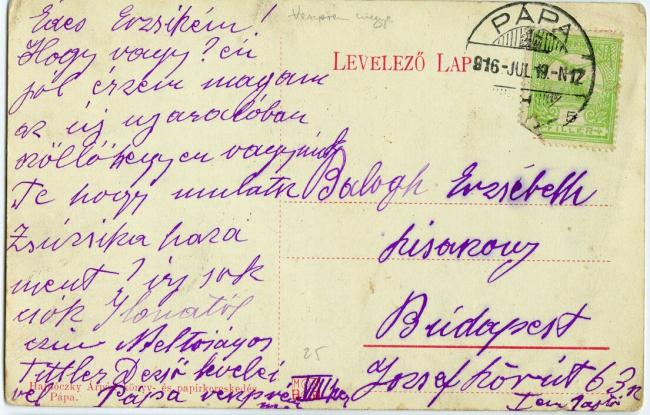 Édes Erzsikém!
Hogy vagy? én
jól érzem magam
az új nyaralóban
szőllőhegyen vagyunk
Te hogy mulatsz
Zsuzsika haza
ment? irj sok
csók Ilonától
czim Méltóságos
Tittler Dezső levelei
vel Pápa veszprém
megye
Veszprém megye
LEVELEZŐ LAP
PÁPA
916-JUL.19.-N12
5
FILLER
Balogh Erzsébeth
kisasszony
Budapest
József körút 63
25
Hajnóczky Árpád könyv- és papirkereskedés
Pápa.